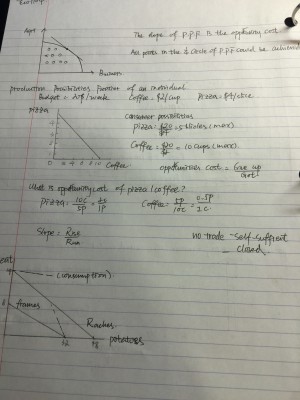 Agri
The slope of P.P.F. is the opportunity cost
All points in the circle of P.P.F could be achieved
Business
production Possibilities Frontier of an individual
Budget = $20/week Coffee: $2/cup Pizza = $4/slice
pizza
consumer possibilities
pizza: $20/$4 = 5 slices (max)
Coffee = $20/$2 = 10 cups (max)
0 2 4 6 8 10 Coffee
opportunities cost = Give up/Get
What is opportunity cost of pizza / coffee?
Pizza: 10C/5P = 2C/1P Coffee = 5P/10C = 0.5P
Slope = Rise/Run
no trade - self-sufficient
closed
meat
(consumption)
Rancher
potatoes